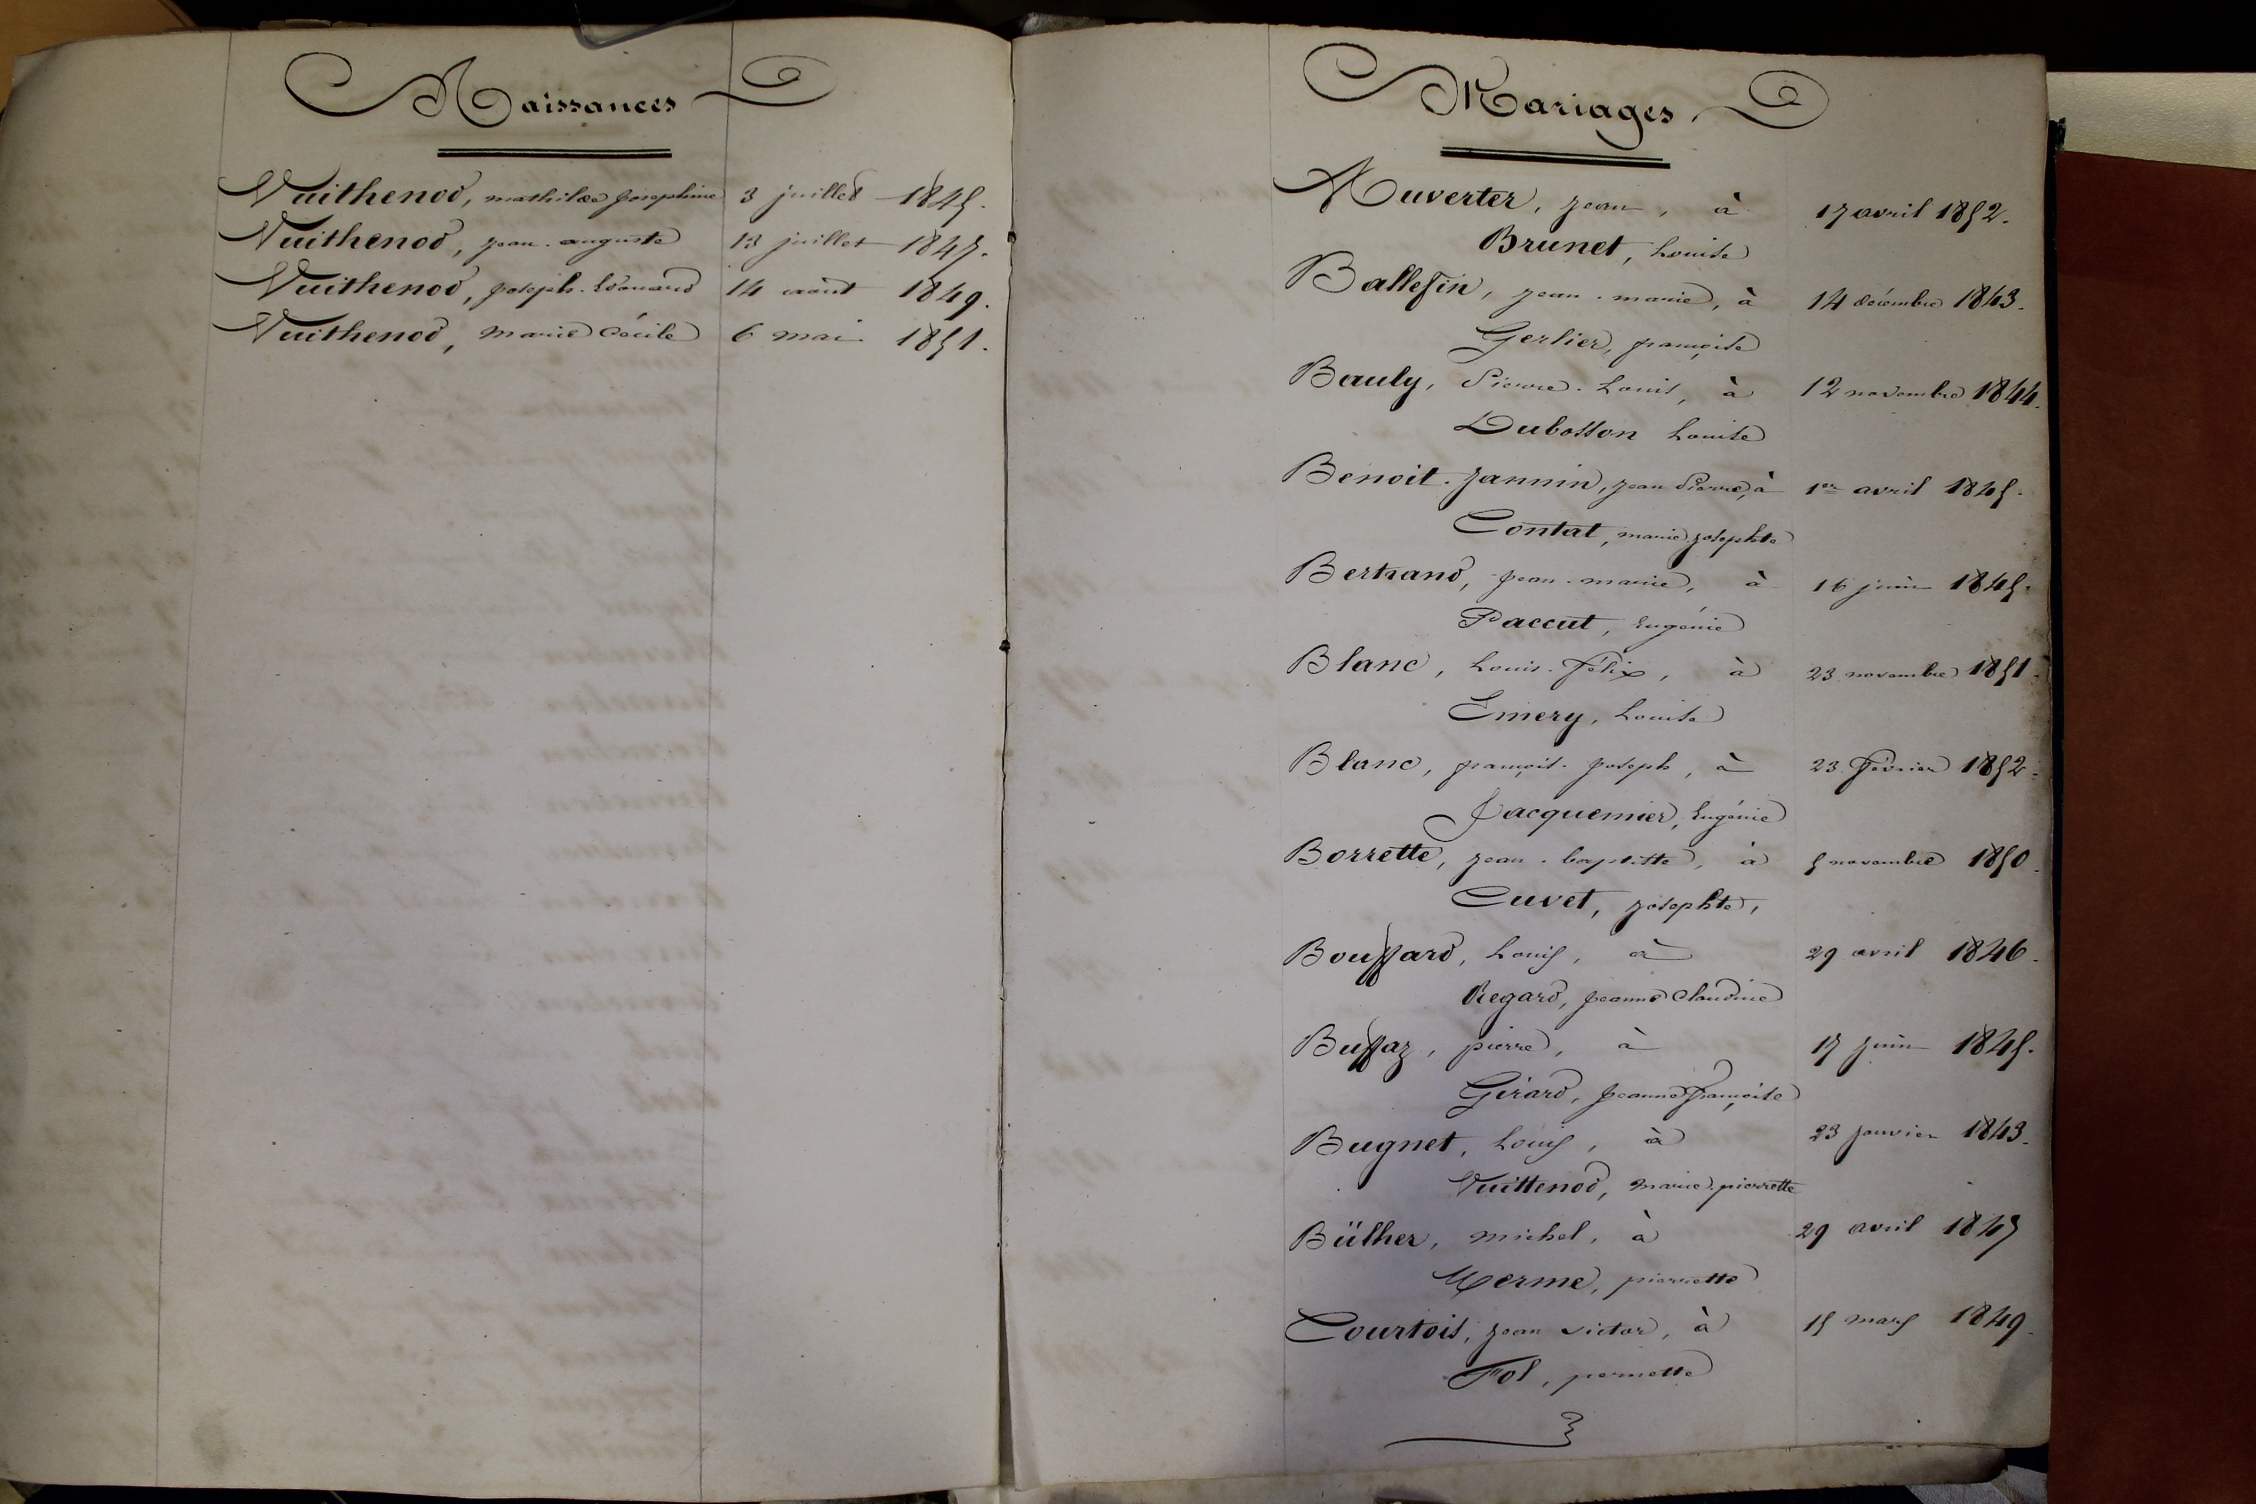 Naissances
Vuithenod, mathilde Josephine 3 juillet 1845.
Vuithenod, jean-auguste 13 juillet 1847.
Vuithenod, joseph-Edouard 14 août 1849.
Vuithenod, marie Cécile 6 mai 1851.
Mariages
Auverter, jean, à 17 avril 1852.
Brunet, Louise
Ballefin, jean-marie, à 14 décembre 1843.
Gerlier, françoise
Bauly, Pierre-Louis, à 12 novembre 1844.
Dubosson Louise
Benoit-Jannin, jean Pierre, à 1er avril 1845.
Contat, marie josephte
Bertrand, jean-marie, à 16 juin 1845.
Paccut, Eugénie
Blanc, Louis-Félix, à 23 novembre 1851.
Emery, Louise
Blanc, françois-joseph, à 23 février 1852.
Jacquemier, Eugénie
Borrette, jean-baptiste, à 5 novembre 1850.
Cuvet, josephte,
Bouffard, Louis, à 29 avril 1846.
Regard, jeanne Claudine
Buffaz, pierre, à 17 juin 1845.
Girard, jeanne françoise
Bugnet, Louis, à 23 janvier 1843.
Vuittenod, marie-pierrette
Bülher, michel, à 29 avril 1847
Merme, pierrette
Courtois, jean victor, à 15 mars 1849.
Fol, pernette